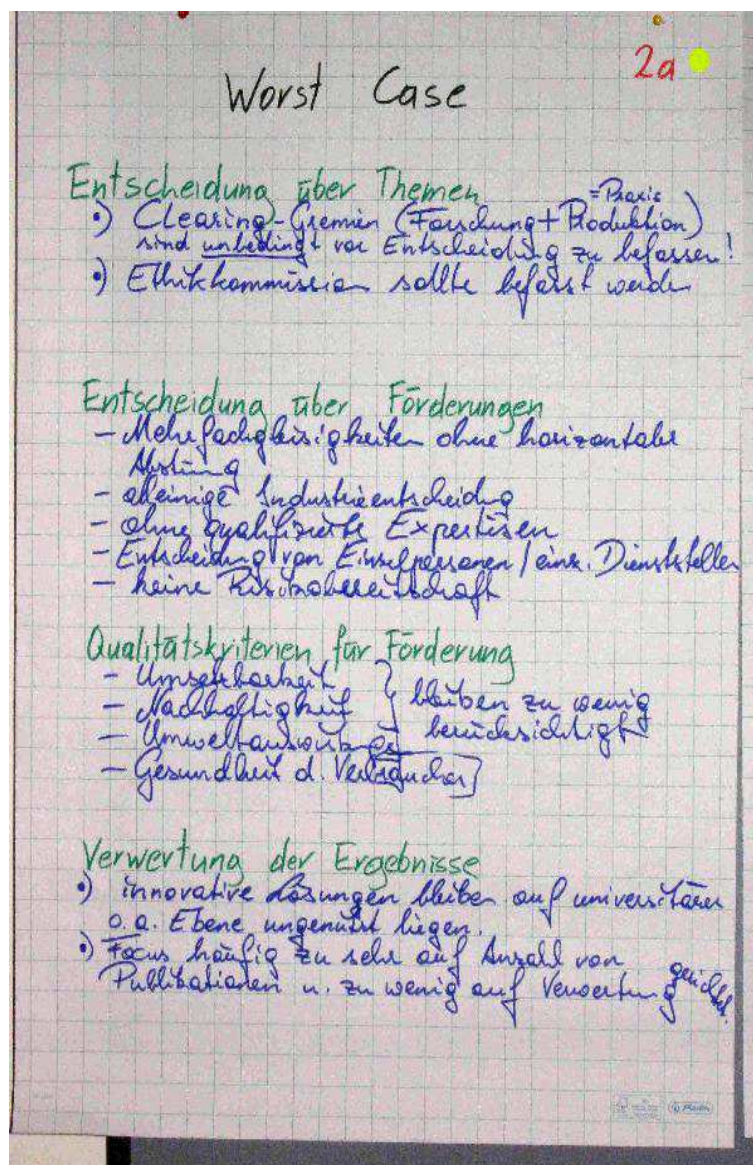 2a
Worst Case
Entscheidung über Themen
= Praxis
•) Clearing-Gremien (Forschung + Produktion)
sind unbedingt vor Entscheidung zu befassen!
•) Ethikkommission sollte befasst werden
Entscheidung über Förderungen
- Mehrfachgleisigkeiten ohne horizontale
- alleinige Industrieentscheidung
- ohne qualifizierte Expertisen
- Entscheidung von Einzelpersonen / einz. Dienststellen
- keine Risikobereitschaft
Qualitätskriterien für Förderung
- Umsetzbarkeit
- Nachhaltigkeit
bleiben zu wenig
berücksichtigt
- Umweltauswirkungen
- Gesundheit d. Verbraucher
Verwertung der Ergebnisse
•) innovative Lösungen bleiben auf universitärer
o. a. Ebene ungenützt liegen.
•) Focus häufig zu sehr auf Anzahl von
Publikationen u. zu wenig auf Verwertung gerichtet.